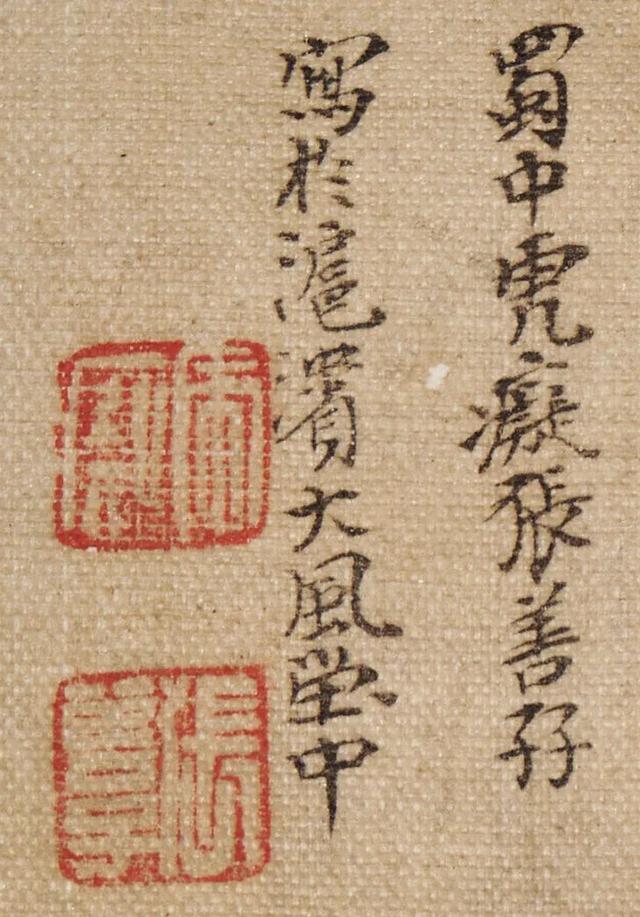 蜀中虎癡張善孖
寫於滬濱大風堂中